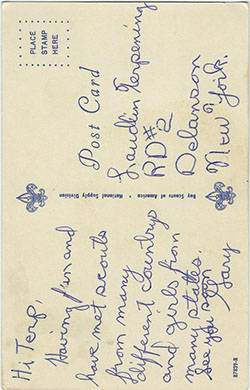 Hi Terp,
Having fun and
have met scouts
from many
different country
and girls from
many states.
See you soon
Gary
Boy Scouts of America • National Supply Division
Post Card
PLACE
STAMP
HERE
Terpening
RD#2
Delanson
New York.